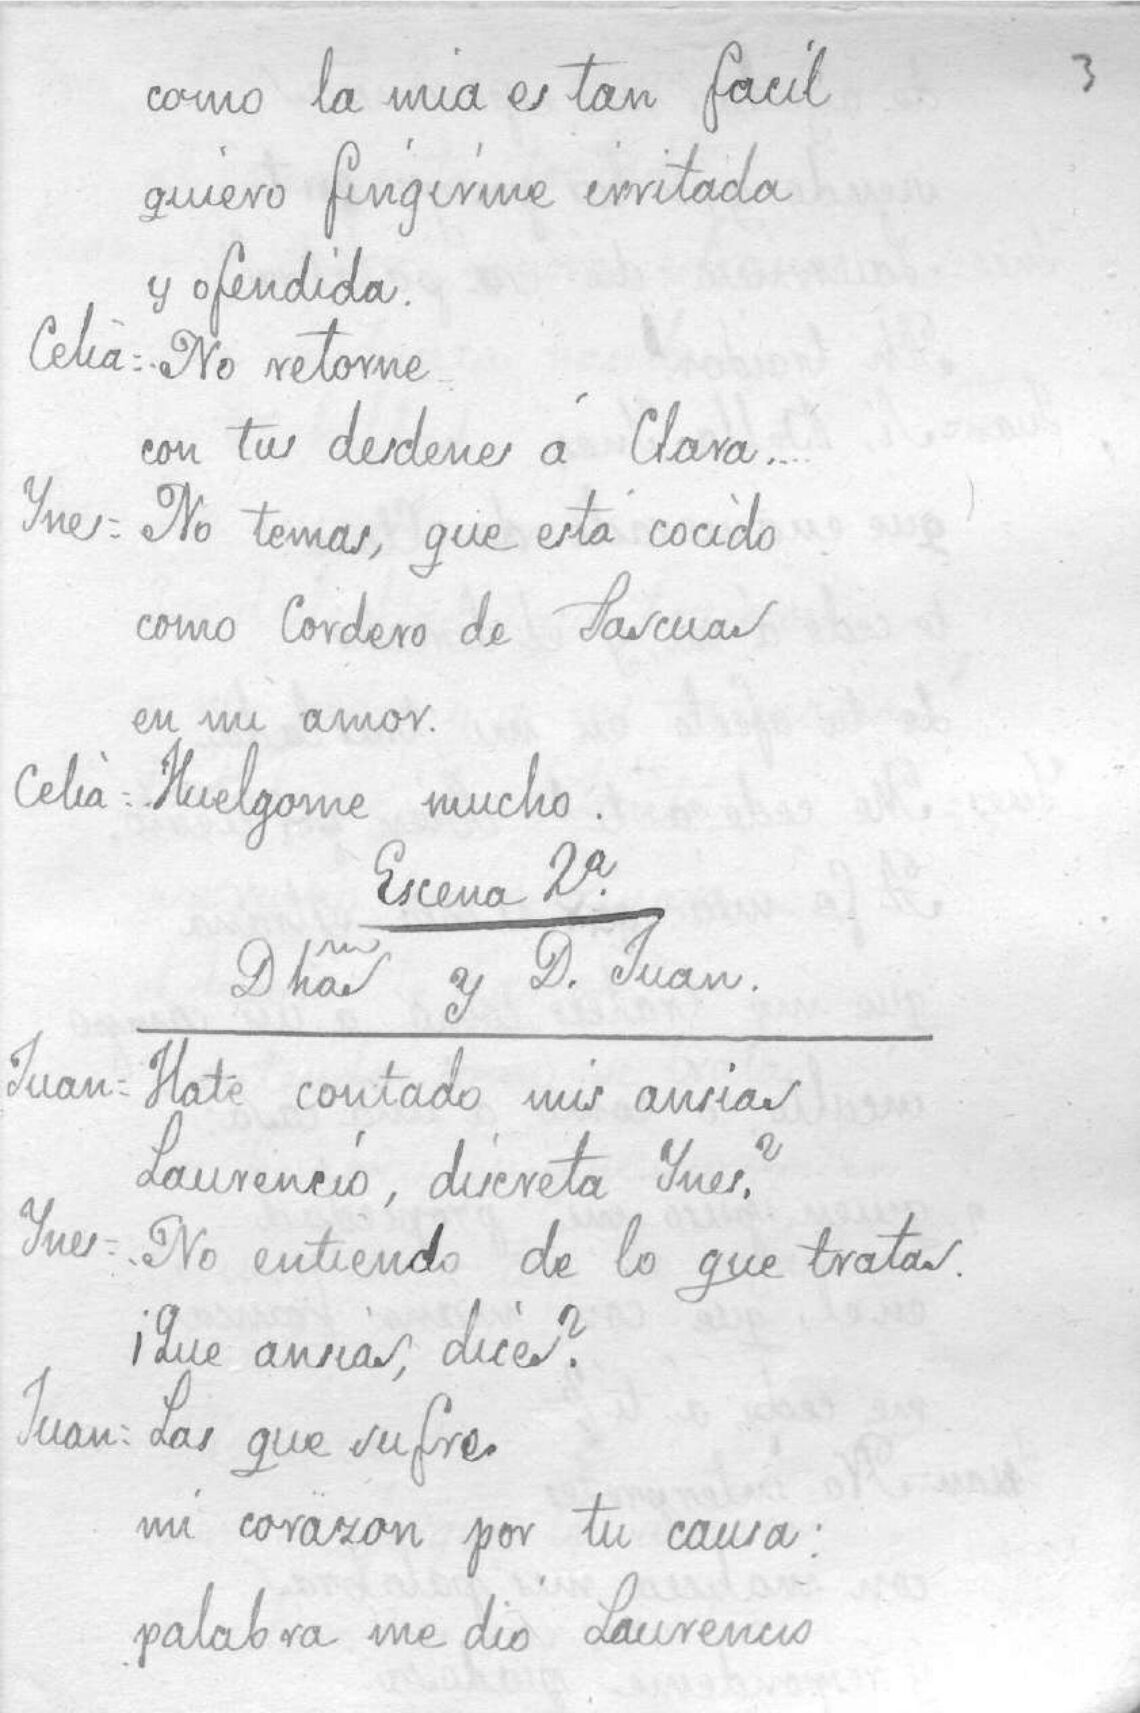 3
como la mia es tan facil
quiero fingirme irritada
y ofendida.
Celia = No retorne
con tus desdenes á Clara....
Ynes = No temas, que está cocido
como Cordero de Pascuas
en mi amor.
Celia = Huelgome mucho.
Escena 2ª.
Dhas y D. Juan.
Juan = Hate contado mis ansias
Laurencio, discreta Ynes?
Ynes = No entiendo de lo que tratas.
¡Que ansias, dices?
Juan = Las que sufre
mi corazon por tu causa:
palabra me dio Laurencio